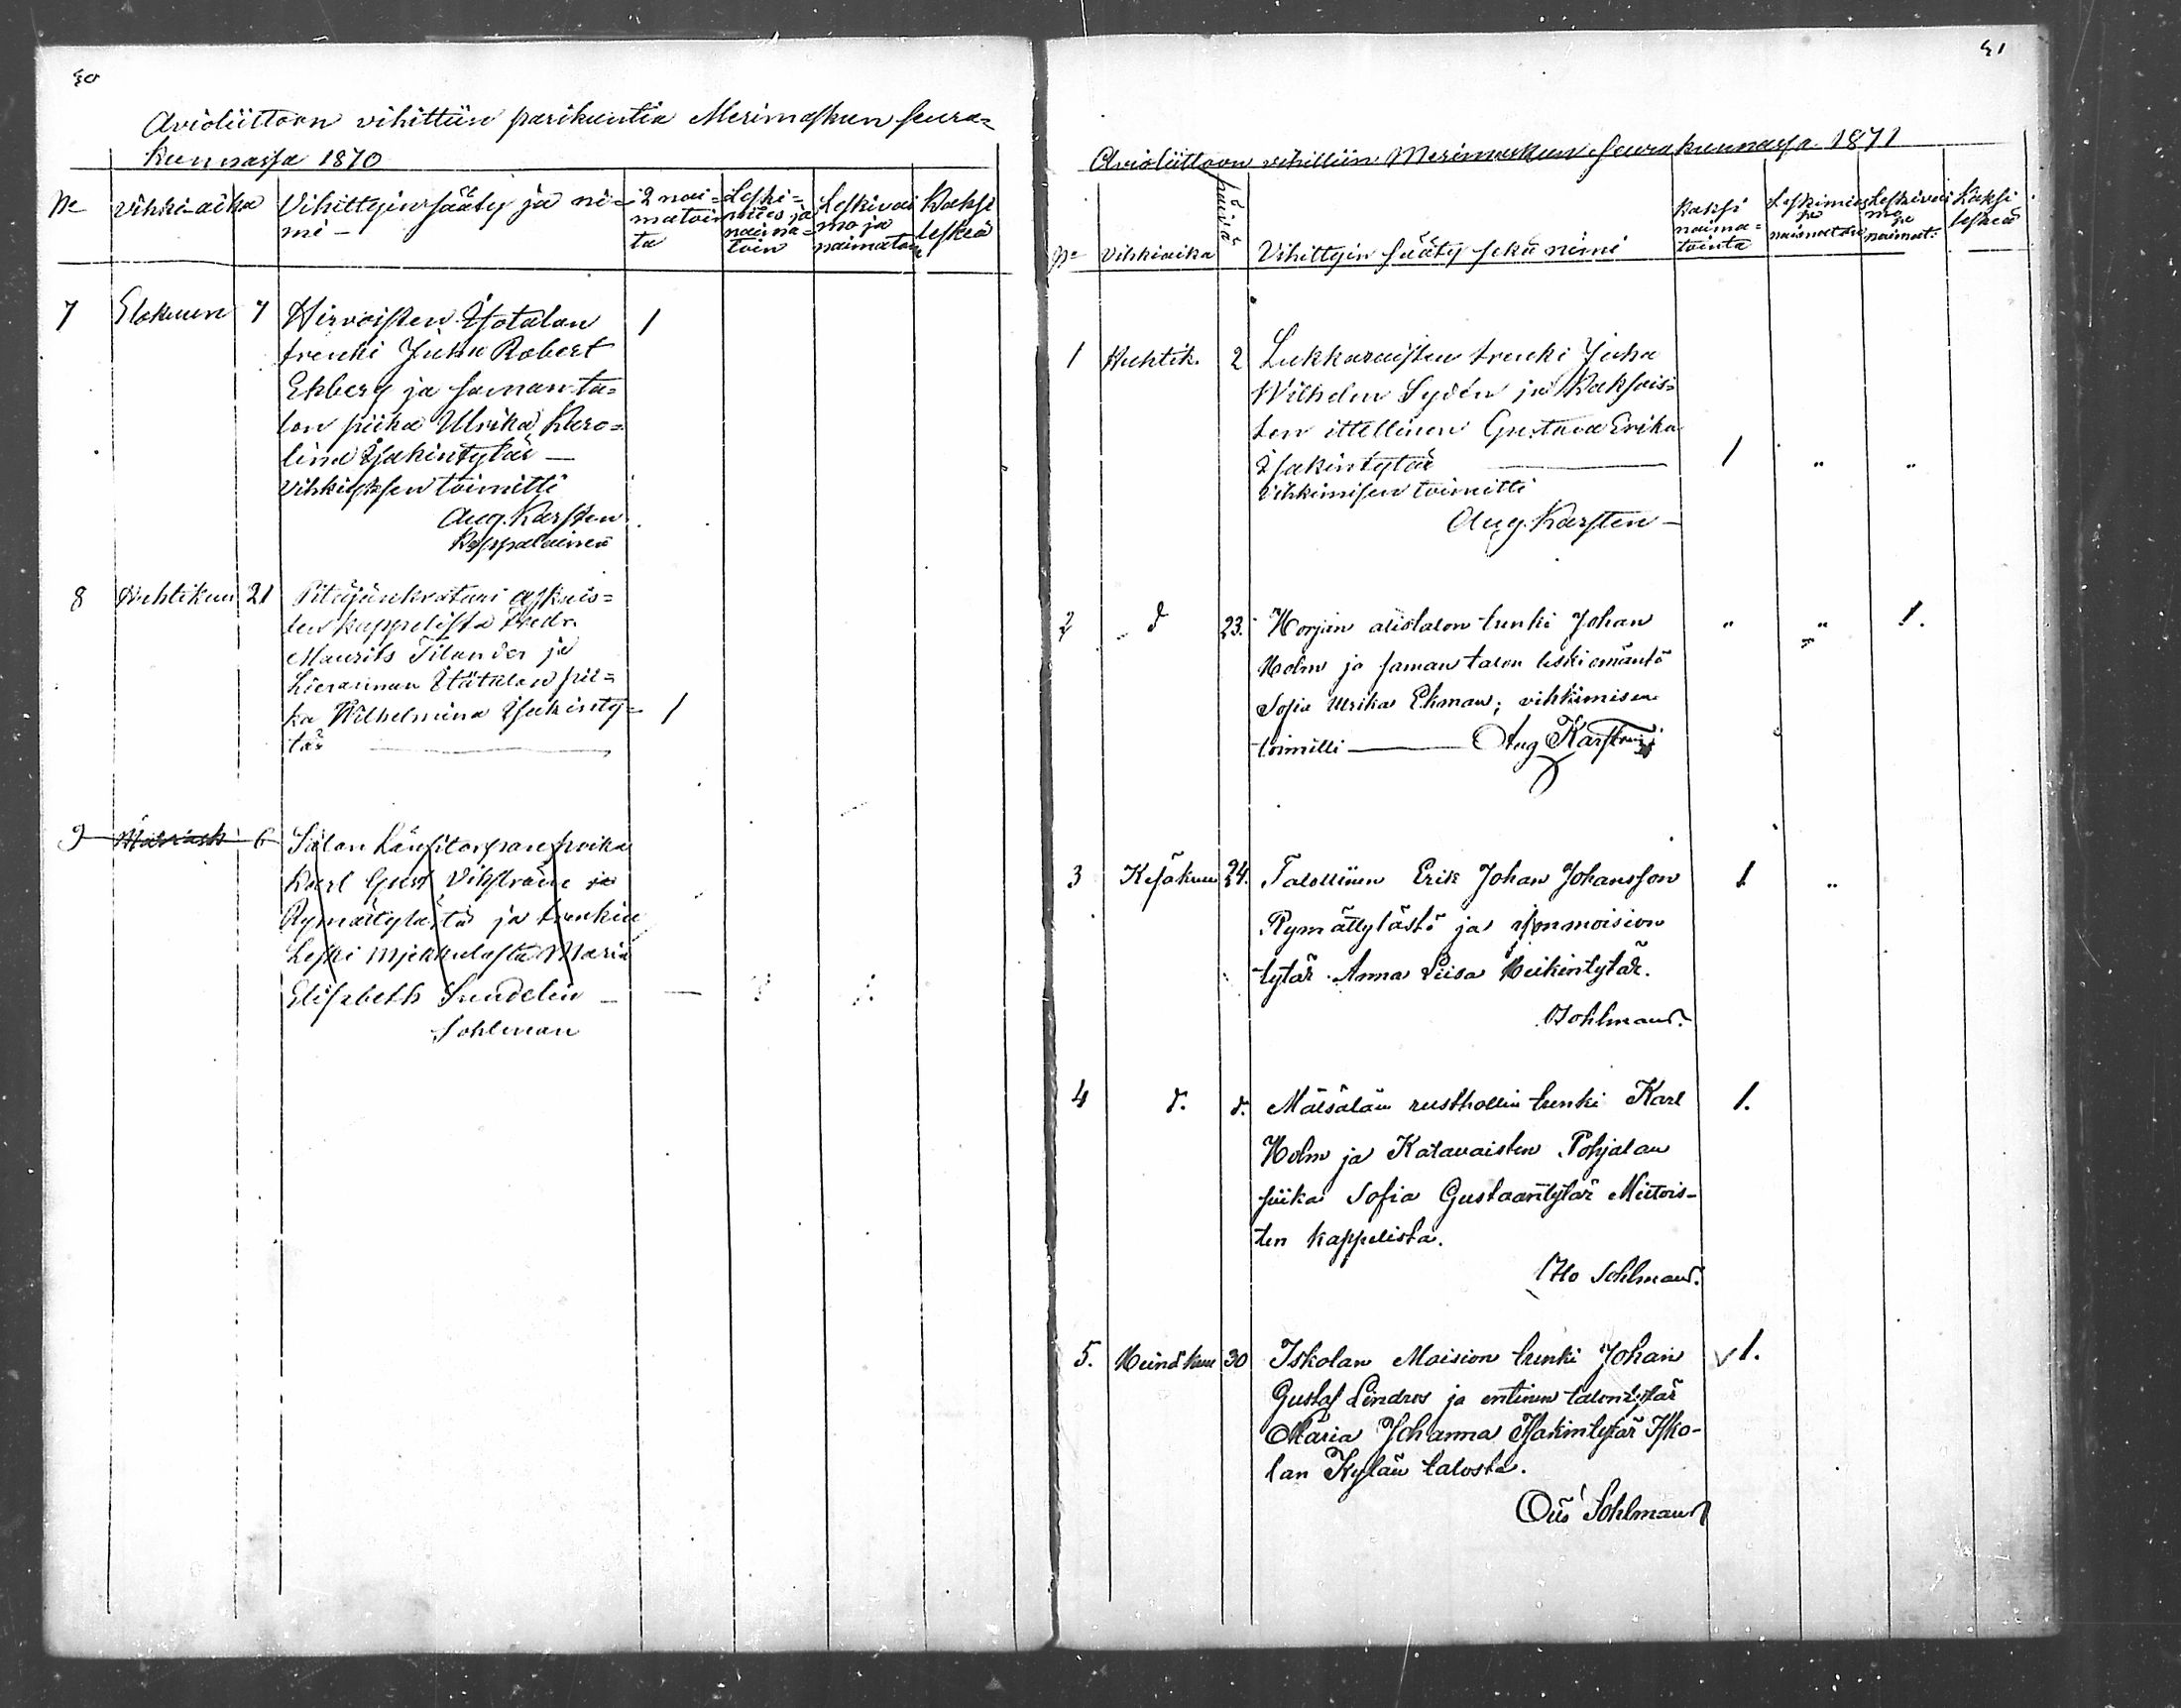 40
Avioliittoon vihittiin parikuntia Merimaskun seura=
kunnassa 1870
No Vihki-aika Vihittyin sääty ja ni=
mi — 2 nai=
matoin
ta Leski=
mies ja
naima=
toin Leskivai
mo ja
naimaton Kaksi
leskeä
7 Elokuun 7 Hirvoisten Isotalon 1
trenki Juha Robert
Ekberg ja saman ta=
lon piika Ulrika Karo=
lina Isakintytär —
Vihkiyksen toimitti
Aug. Karsten
Kappalainen
8 Huhtikuu 21 Pitäjänkraatari Askais=
ten kappelista Fredr.
Maurits Tilander ja
Ylätalon pii=
ka Wilhelmina Isakinty= 1
tär
9 6 Länsitorpan poika
Karl Gust Vikström ja
Rymättylästä ja trenkin
Leski Maria
Elisabeth Sundelin —
Sohlman
41
Avioliittoon vihittiin Merimaskun seurakunnassa 1871
No Vihkiaika päivä Vihittyin sääty sekä nimi Kaksi
naima=
tointa Leskimies
ja
naimatoin Leskivai
mo
ja
naimat. Kaksi
leskeä
1 Huhtik. 2 Lukkaraisten trenki Juha
Wilhelm Sydén ja
ten itellinen Gustava Erika
Isakintytär 1 " "
Vihkimisen toimitti
Aug. Karsten —
2 d 23. alistalon trenki Johan " " 1.
Holm ja saman talon leski emäntä
Sofia Ulrika Ekman; vihkimisen
toimitti — Aug Karsten
3 Kesäkuu 24. Talollinen Erik Johan Johansson 1 "
Rymättylästä ja
tytär Anna Liisa Heikintytär.
O Sohlman.
4 d. d. rusthollin trenki Karl 1.
Holm ja Katavaisten Pohjalan
piika Sofia Gustaantytär Mietois-
ten kappelista.
Otto Sohlman.
5. Heinäkuu 30 Iskolan Moision trenki Johan 1.
Gustaf Lindros ja entinen talontytär
Maria Johanna Isakintytär Isko-
lan Kylän talosta.
Sohlman